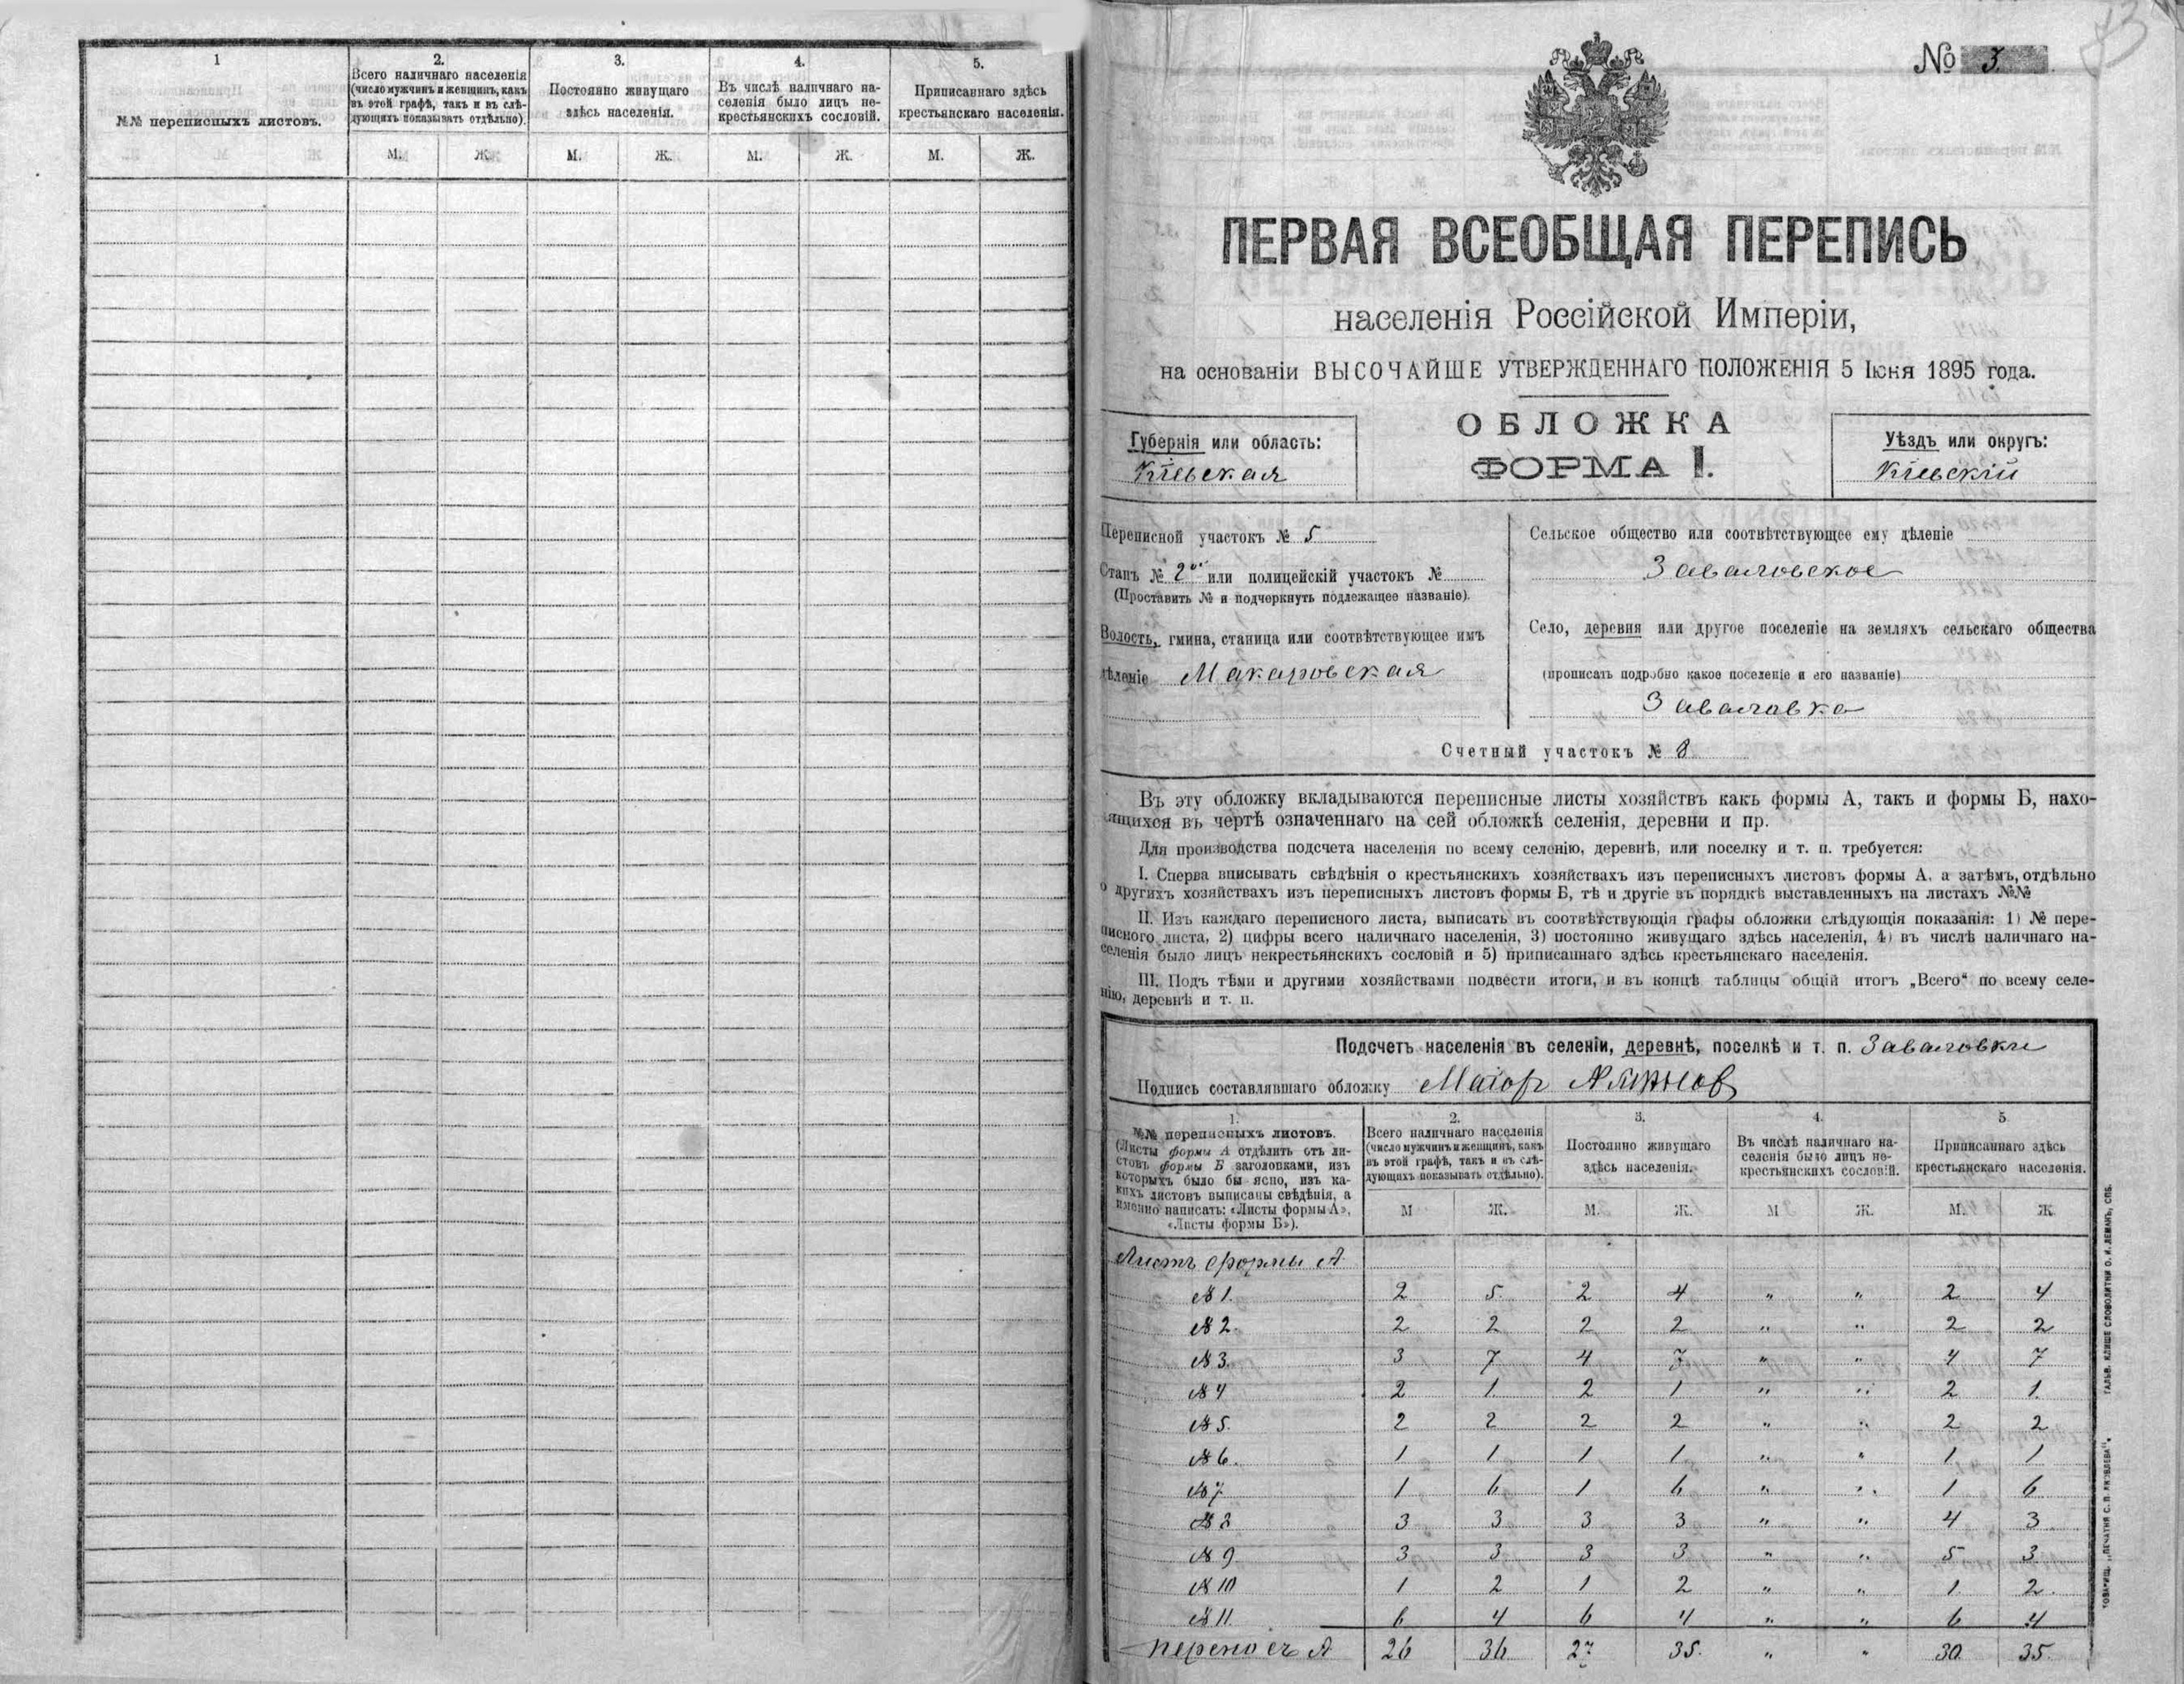 1
№№ переписныхъ листовъ.
2.
Всего наличнаго населенія
(число мужчинъ и женщинъ, какъ
въ этой графѣ, такъ и въ слѣ-
дующихъ показывать отдѣльно).
3.
Постоянно живущаго
здѣсь населенія.
4.
Въ числѣ наличнаго на-
селенія было лицъ не-
крестьянскихъ сословій.
5.
Приписаннаго здѣсь
крестьянскаго населенія.
М. Ж. М. Ж. М. Ж. М. Ж.
73
№ 3.
ПЕРВАЯ ВСЕОБЩАЯ ПЕРЕПИСЬ
населенія Россійской Имперіи,
на основаніи ВЫСОЧАЙШЕ УТВЕРЖДЕННАГО ПОЛОЖЕНІЯ 5 Іюня 1895 года.
ОБЛОЖКА
ФОРМА I.
Губернія или область:
Кіевская
Уѣздъ или округъ:
Кіевскій
Переписной участокъ № 5
Станъ № 2ой или полицейскій участокъ №
(Проставить № и подчеркнуть подлежащее названіе).
Волость, гмина, станица или соотвѣтствующее имъ
дѣленіе Макаровская
Сельское общество или соотвѣтствующее ему дѣленіе
Заваловское
Село, деревня или другое поселеніе на земляхъ сельскаго общества
(прописать подробно какое поселеніе и его названіе)
Заваловка
Счетный участокъ № 8
Въ эту обложку вкладываются переписные листы хозяйствъ какъ формы А, такъ и формы Б, нахо-
ящихся въ чертѣ означеннаго на сей обложкѣ селенія, деревни и пр.
Для производства подсчета населенія по всему селенію, деревнѣ, или поселку и т. п. требуется:
I. Сперва вписывать свѣдѣнія о крестьянскихъ хозяйствахъ изъ переписныхъ листовъ формы А, а затѣмъ, отдѣльно
о другихъ хозяйствахъ изъ переписныхъ листовъ формы Б, тѣ и другіе въ порядкѣ выставленныхъ на листахъ №№
II. Изъ каждаго переписного листа, выписать въ соотвѣтствующія графы обложки слѣдующія показанія: 1) № пере-
писного листа, 2) цифры всего наличнаго населенія, 3) постоянно живущаго здѣсь населенія, 4) въ числѣ наличнаго на-
селенія было лицъ некрестьянскихъ сословій и 5) приписаннаго здѣсь крестьянскаго населенія.
III. Подъ тѣми и другими хозяйствами подвести итоги, и въ концѣ таблицы общій итогъ „Всего“ по всему селе-
нію, деревнѣ и т. п.
Подсчетъ населенія въ селеніи, деревнѣ, поселкѣ и т. п. Заваловки
Подпись составлявшаго обложку Маіор
1.
№№ переписныхъ листовъ.
(Листы формы А отдѣлить отъ ли-
стовъ формы Б заголовками, изъ
которыхъ было бы ясно, изъ ка-
кихъ листовъ выписаны свѣдѣнія, а
именно написать: «Листы формы А»,
«Листы формы Б»).
2.
Всего наличнаго населенія
(число мужчинъ и женщинъ, какъ
въ этой графѣ, такъ и въ слѣ-
дующихъ показывать отдѣльно).
3.
Постоянно живущаго
здѣсь населенія.
4.
Въ числѣ наличнаго на-
селенія было лицъ не-
крестьянскихъ сословій.
5
Приписаннаго здѣсь
крестьянскаго населенія.
М Ж. М. Ж. М Ж. М. Ж.
Листъ формы А
№ 1. 2 5. 2 4 " " 2 4
№ 2. 2 2 2 2 " " 2 2
№ 3. 3 7 4 7 " " 4 7
№ 4 2 1 2 1 " " 2 1.
№ 5. 2 2 2 2 " " 2 2
№ 6. 1 1 1 1 " " 1 1
№ 7 1 6 1 6 " " 1 6
№ 8 3 3 3 3 " " 4 3
№ 9 3 3 3 3 " " 5 3
№ 10 1 2 1 2 " " 1. 2.
№ 11. 6 4 6 4 " " 6 4
переносъ А 26 36 27 35. " " 30. 35.
ТОВАРИЩ. „ПЕЧАТНЯ С. П. ЯКОВЛЕВА“. ГАЛЬВ. КЛИШЕ СЛОВОЛИТНИ О. И. ЛЕМАНЪ, СПБ.